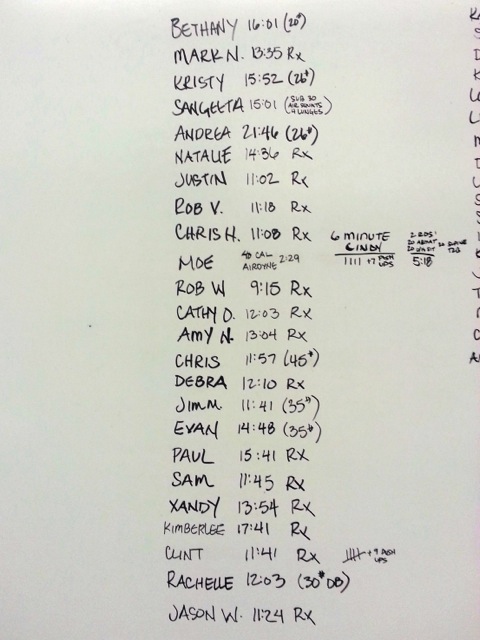 BETHANY 16:01 (20#)
MARK N. 13:35 Rx
KRISTY 15:52 (26#)
SANGEETA 15:01 (SUB 30 AIR SQUATS & LUNGES)
ANDREA 21:46 (26#)
NATALIE 14:36 Rx
JUSTIN 11:02 Rx
ROB V. 11:18 Rx
CHRIS H. 11:08 Rx 6 MINUTE CINDY 1111 +7 PUSH UPS 2 RDS: 5:18
MOE 40 CAL AIRDYNE 2:29
ROB W 9:15 Rx
CATHY D. 12:03 Rx
AMY N. 13:04 Rx
CHRIS 11:57 (45#)
DEBRA 12:10 Rx
JIMM 11:41 (35#)
EVAN 14:48 (35#)
PAUL 15:41 Rx
SAM 11:45 Rx
XANDY 13:54 Rx
KIMBERLEE 17:41 Rx
CLINT 11:41 Rx +9 PUSH UPS
RACHELLE 12:03 (30# DB)
JASON W. 11:24 Rx